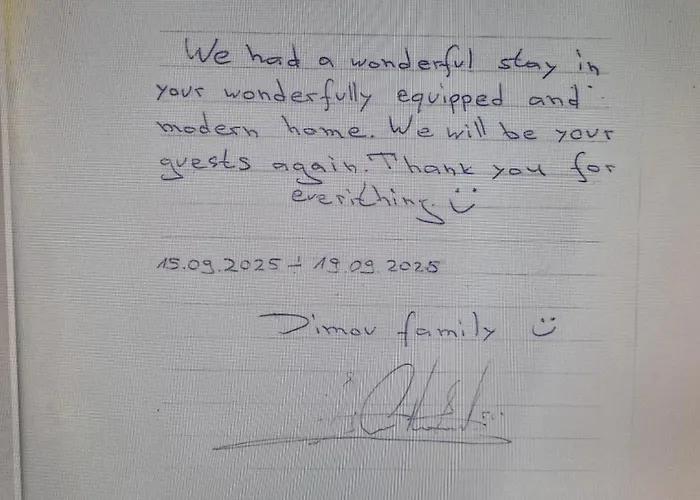 We had a wonderful stay in
your wonderfully equipped and
modern home. We will be your
guests again. Thank you for
everithing :)
15.09.2025 ÷ 19.09.2025
Dimov family :)